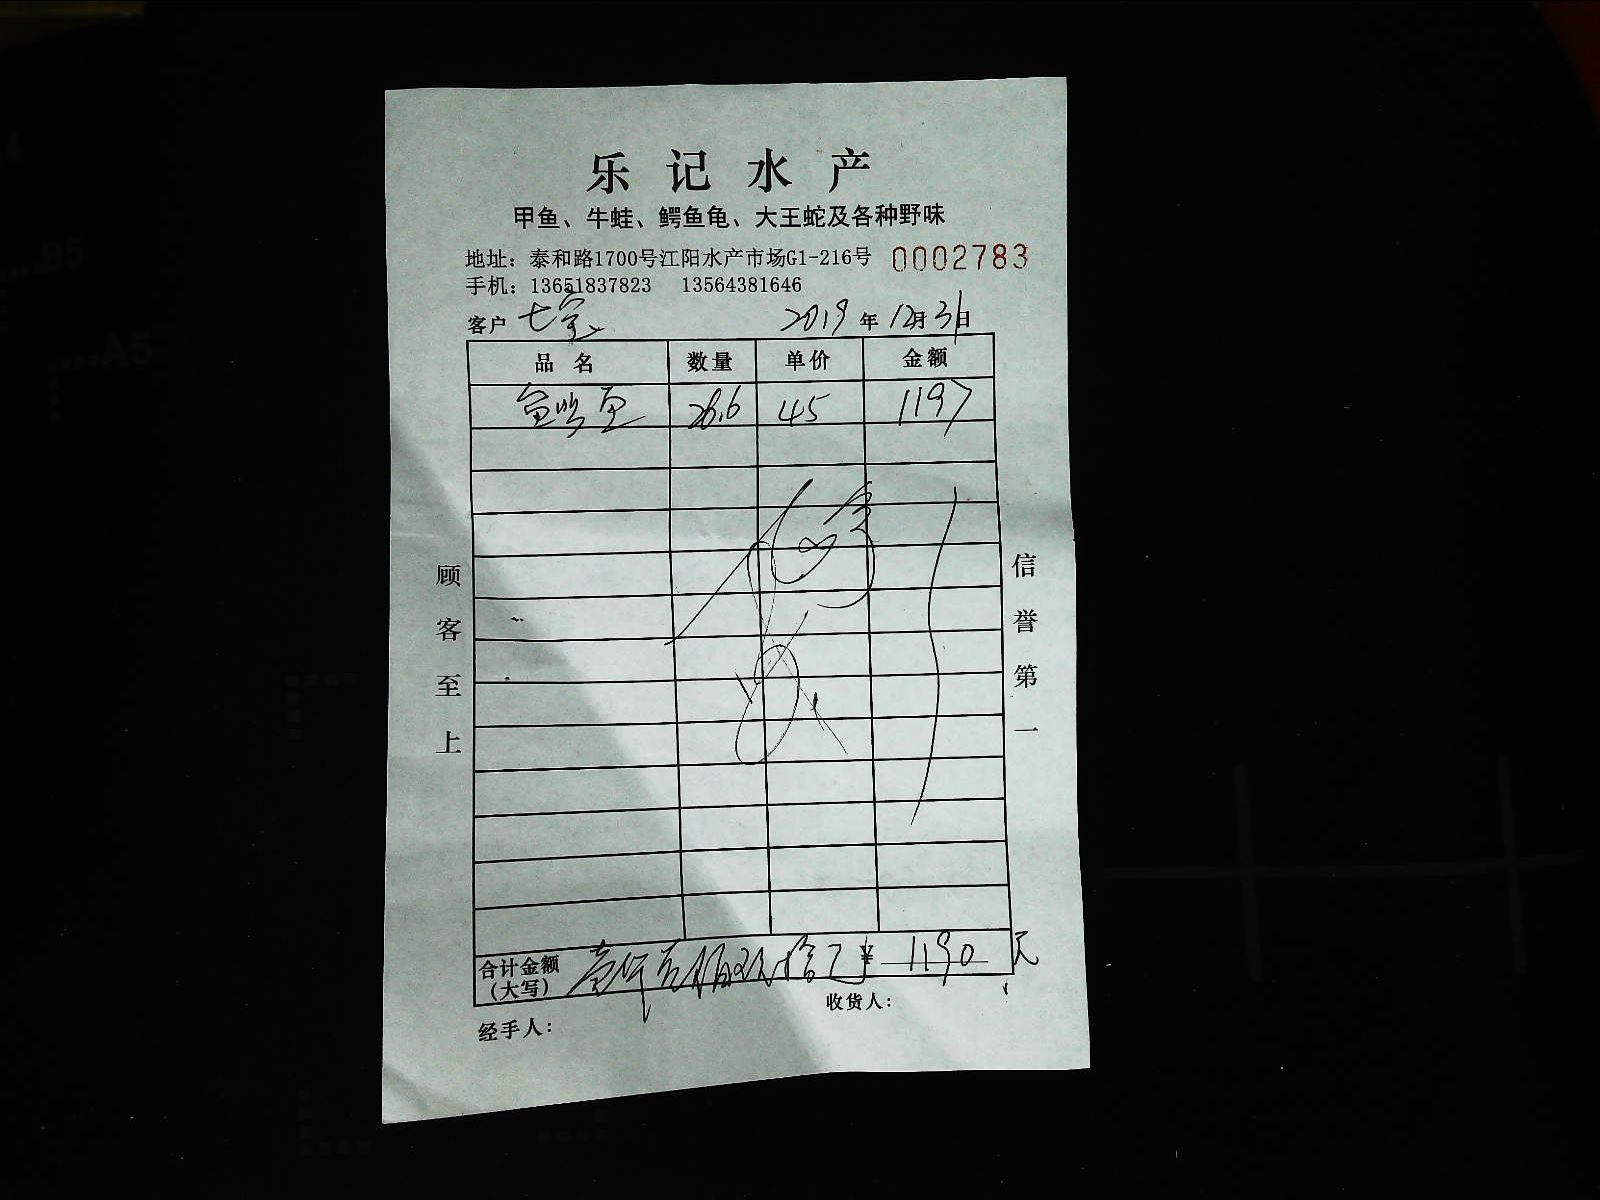 乐记水产
甲鱼、牛蛙、鳄鱼龟、大王蛇及各种野味
地址：泰和路1700号江阳水产市场G1-216号 0002783
手机：13651837823 13564381646
客户 七宝 2019年12月31日
品名 数量 单价 金额
26.6 45 1197
顾客至上
信誉第一
合计金额（大写） 壹仟壹佰玖拾元 ¥ 1190 元
收货人：
经手人：